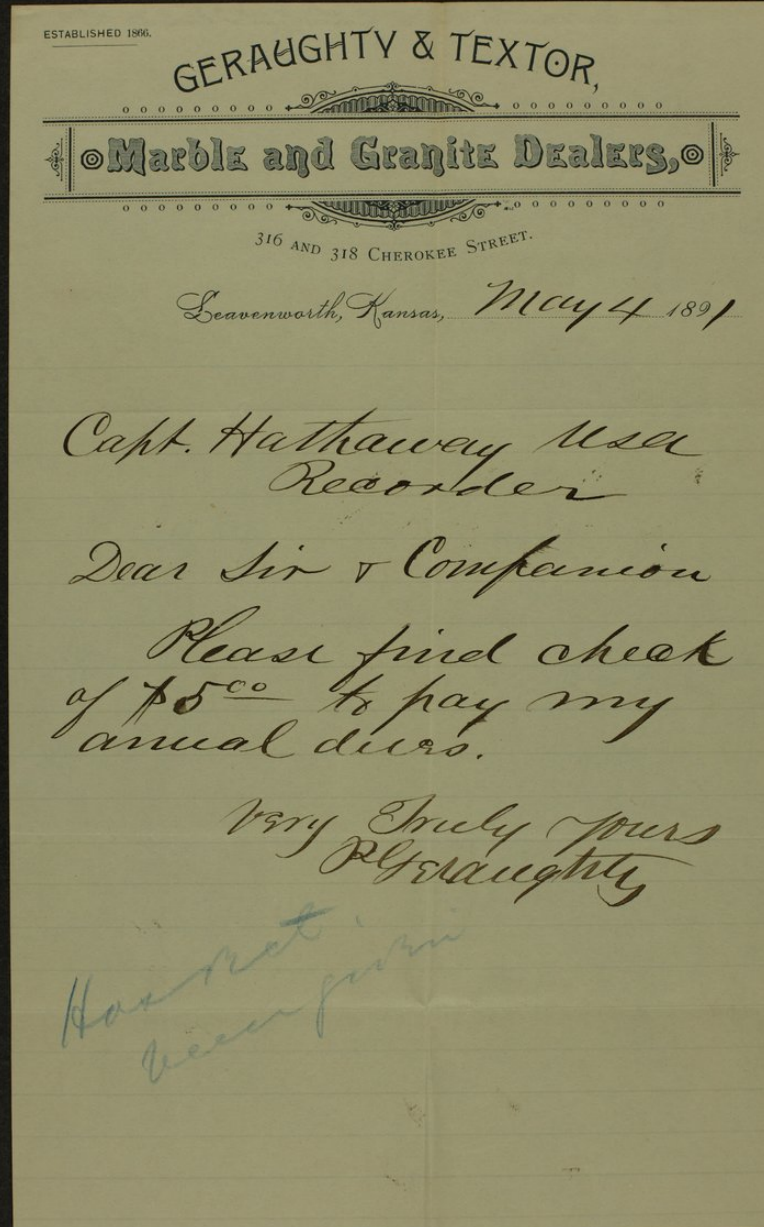 ESTABLISHED 1866.
GERAUGHTY & TEXTOR,
Marble and Granite Dealers,
316 AND 318 CHEROKEE STREET.
Leavenworth, Kansas, May 4 1891
Capt. Hathaway Usa
Recorder
Dear Sir & Companion
Please find check
of $5.00 to pay my
annual dues.
Very Truly Yours
Geraughty
Has
been given